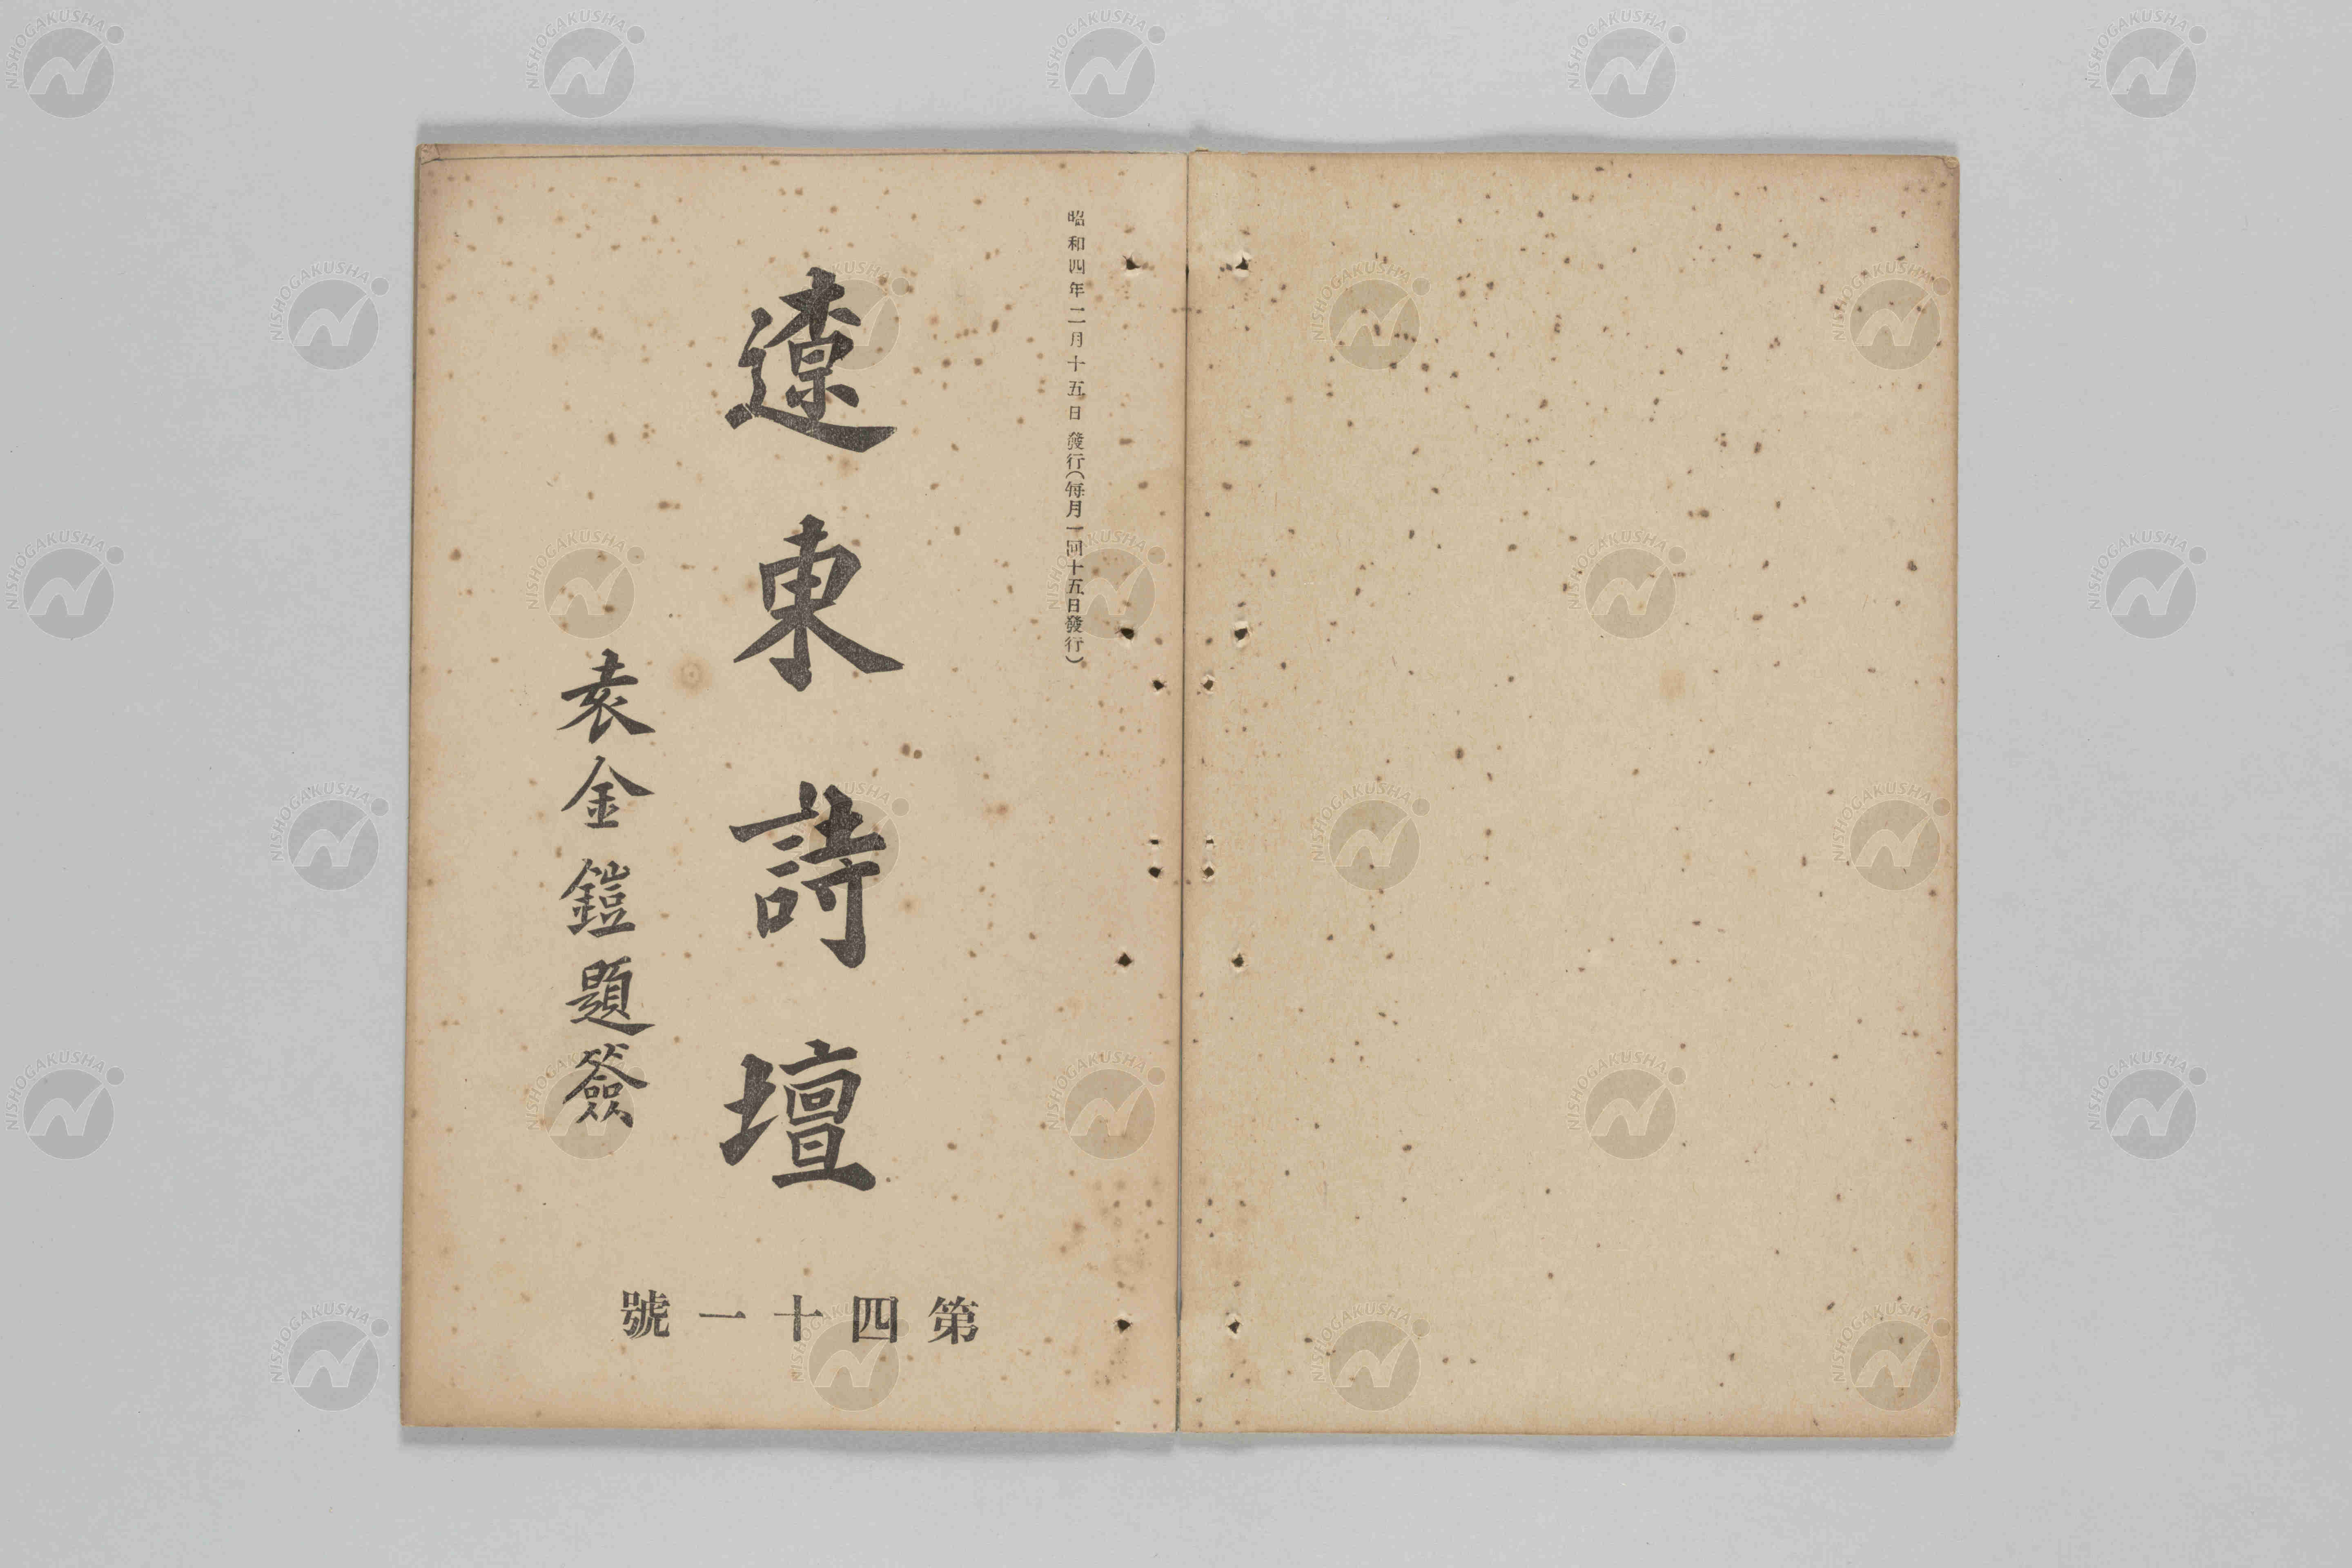 昭和四年二月十五日發行(每月一回十五日發行)
遼東詩壇
袁金鎧題簽
第四十一號
NISHOGAKUSHA